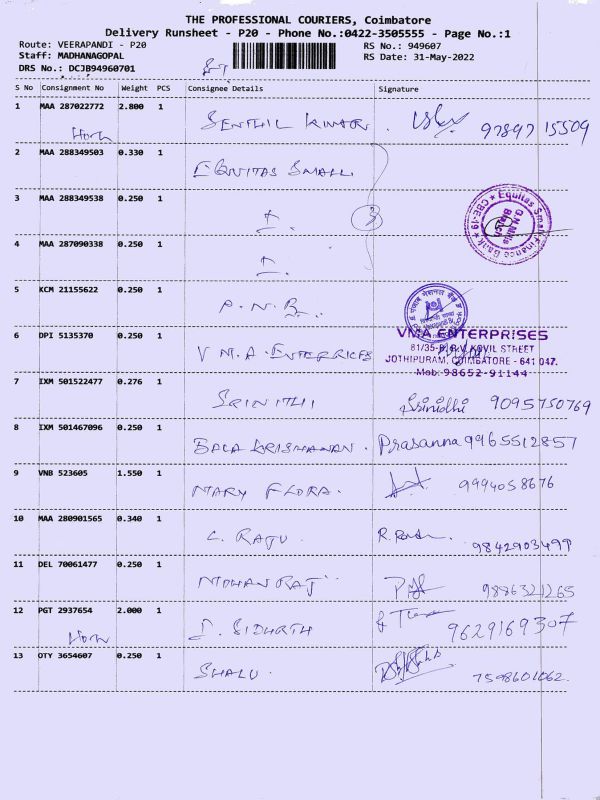 THE PROFESSIONAL COURIERS, Coimbatore
Delivery Runsheet - P20 - Phone No.:0422-3505555 - Page No.:1
Route: VEERAPANDI - P20 RS No.: 949607
Staff: MADHANAGOPAL RS Date: 31-May-2022
DRS No.: DCJB94960701
S No Consignment No Weight PCS Consignee Details Signature
1 MAA 287022772 2.800 1 SENTHIL KUMAR. 97897 15509
2 MAA 288349503 0.330 1 EQNITAS SMALL
3 MAA 288349538 0.250 1 3
4 MAA 287090338 0.250 1
Equitas Small Finance Bank
CBE-19
Branch
5 KCM 21155622 0.250 1 P.N.B.
6 DPI 5135370 0.250 1 V M.A. ENTERPRICES
VMA ENTERPRISES
KOVIL STREET
JOTHIPURAM, COIMBATORE - 641 047.
Mob: 98652-91144
7 IXM 501522477 0.276 1 SRINITHI Srinidhi 9095750769
8 IXM 501467096 0.250 1 BALA KRISHANAN. Prasanna 9965512857
9 VNB 523605 1.550 1 MARY FLORA. 9994058676
10 MAA 280901565 0.340 1 C. RAJU. 9842903499
11 DEL 70061477 0.250 1 MOHAN RAJ 9886321265
12 PGT 2937654 2.000 1 I. SIDHRTH 9629169307
13 OTY 3654607 0.250 1 SHALU. 7598601062.